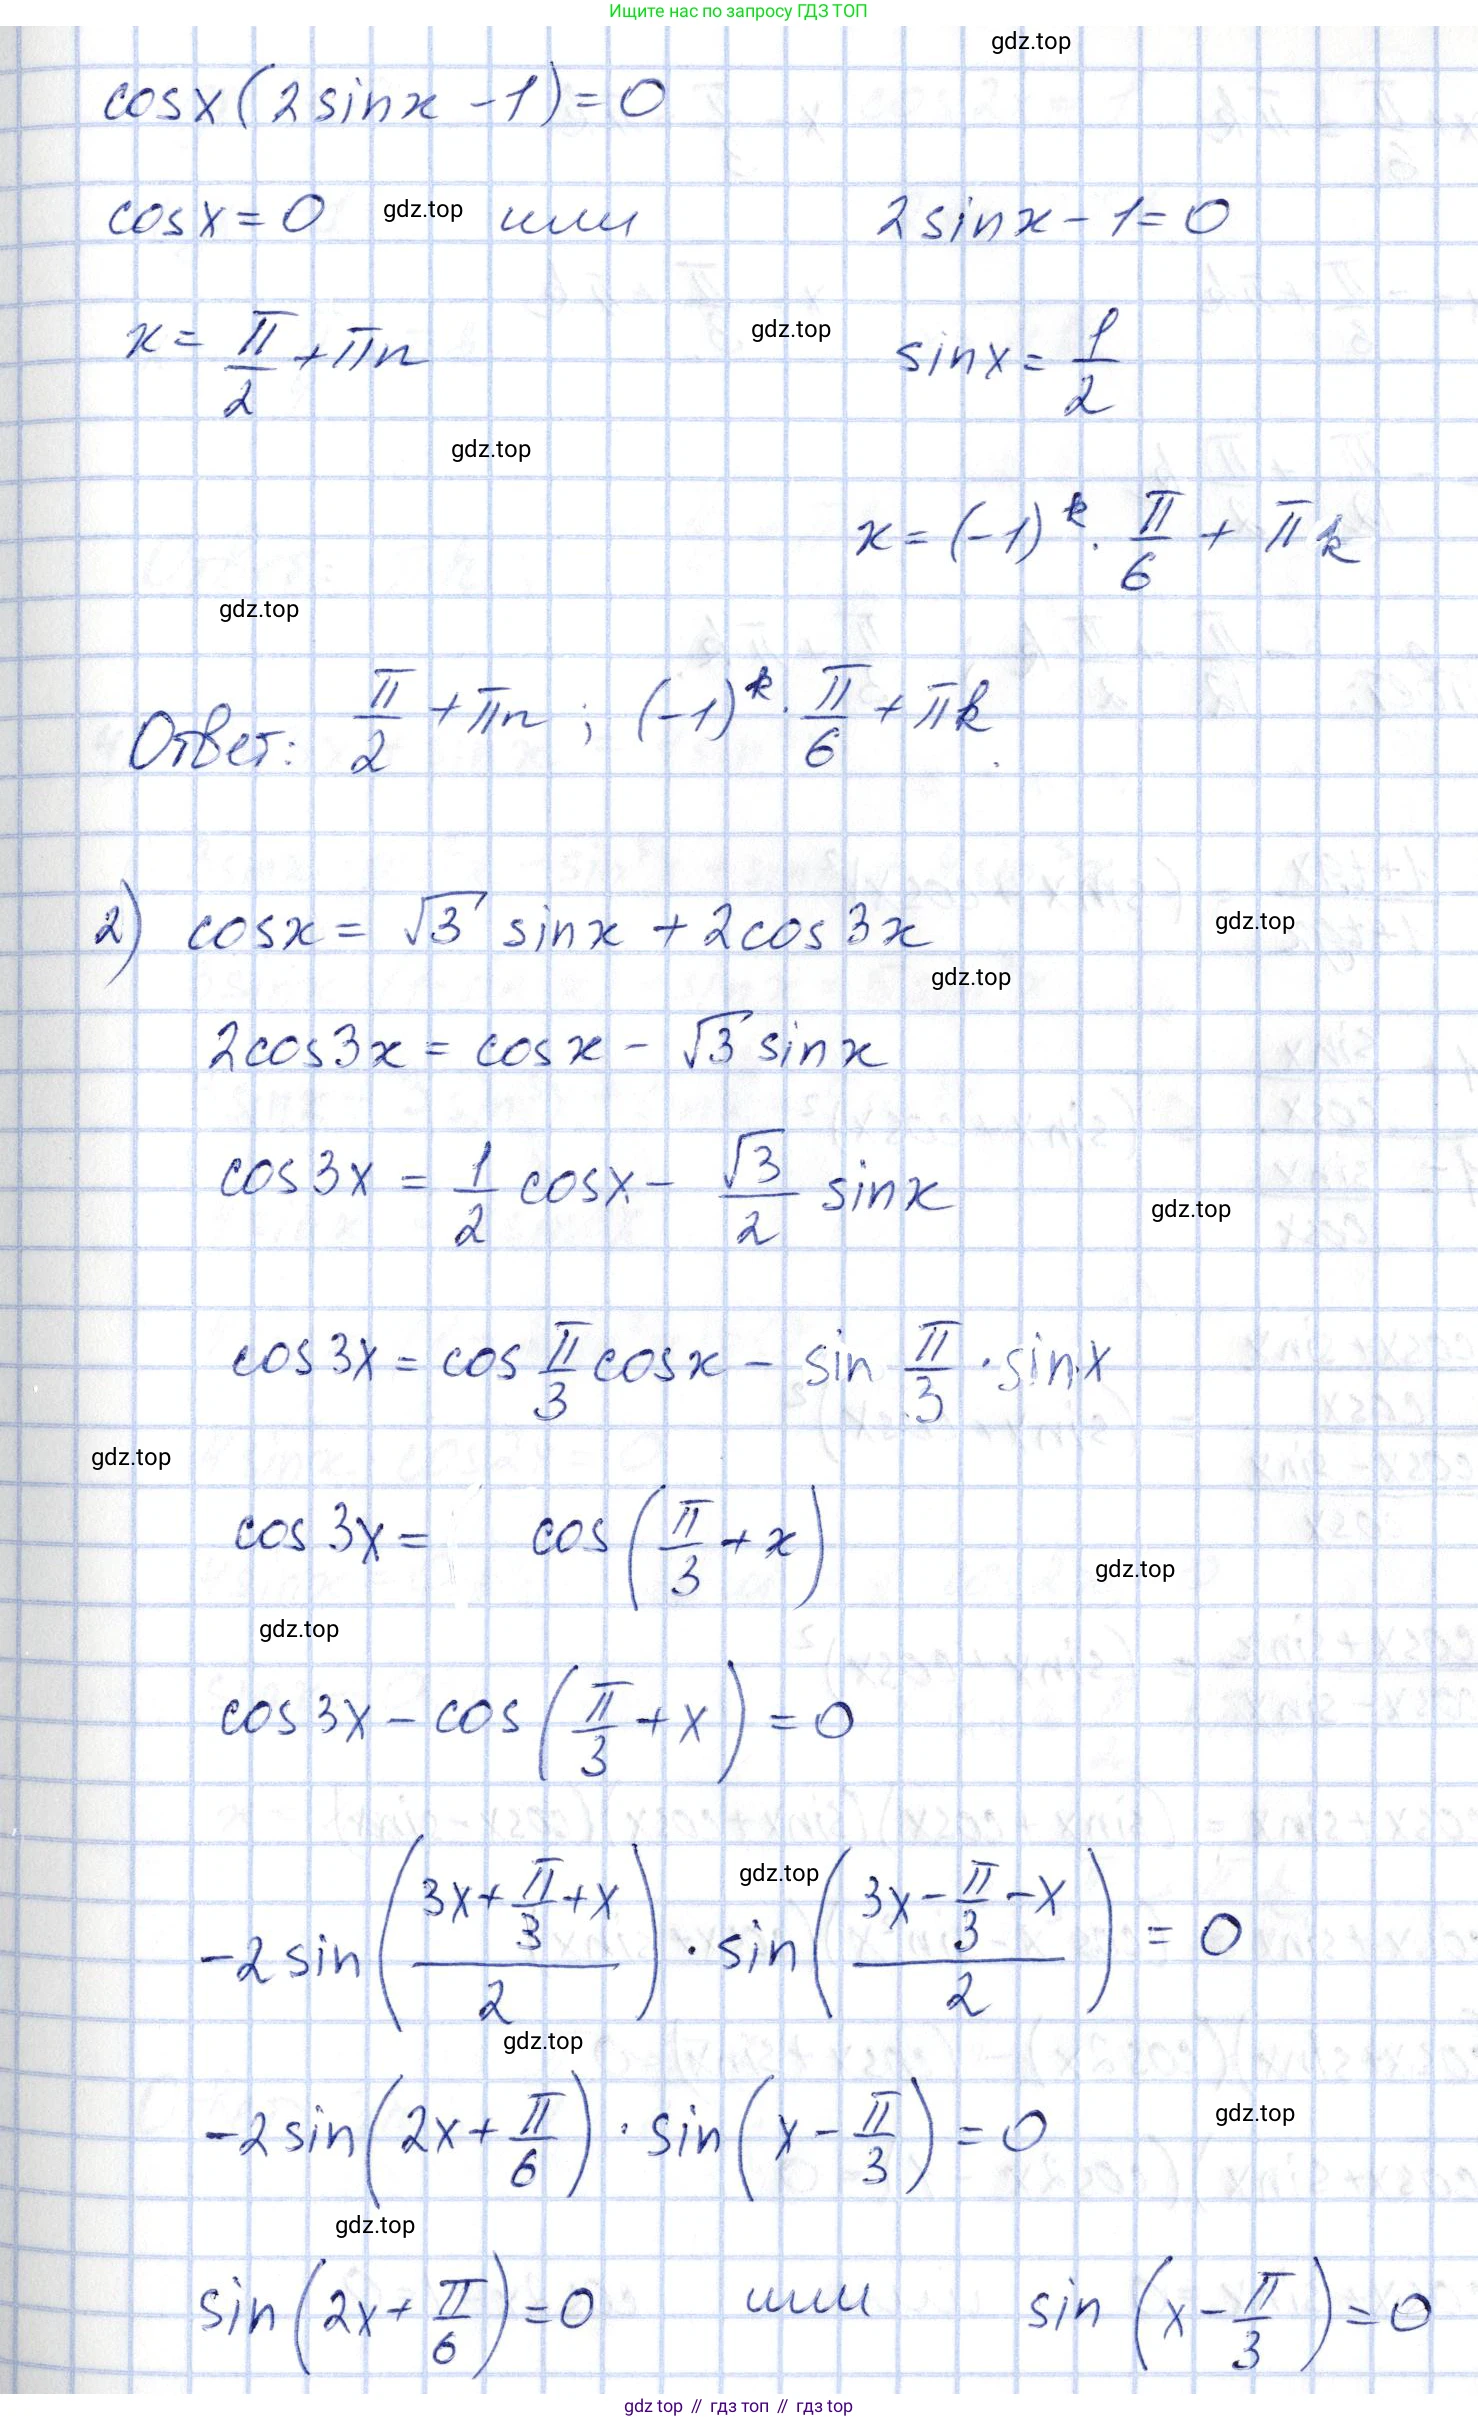 Ищите нас по запросу ГДЗ ТОП
gdz.top
cosx(2sinx - 1) = 0
cosx = 0 gdz.top или 2sinx - 1 = 0
x = π/2 + πn gdz.top sinx = 1/2
gdz.top
x = (-1)^k · π/6 + πk
gdz.top
Ответ: π/2 + πn ; (-1)^k · π/6 + πk.
2) cosx = √3 sinx + 2cos3x gdz.top
gdz.top
2cos3x = cosx - √3 sinx
cos3x = 1/2 cosx - √3/2 sinx gdz.top
cos3x = cos π/3 cosx - sin π/3 · sinx
gdz.top
cos3x = cos(π/3 + x) gdz.top
gdz.top
cos3x - cos(π/3 + x) = 0
gdz.top
-2sin((3x + π/3 + x)/2) · sin((3x - π/3 - x)/2) = 0
gdz.top
-2sin(2x + π/6) · sin(x - π/3) = 0 gdz.top
gdz.top
sin(2x + π/6) = 0 или sin(x - π/3) = 0
gdz top // гдз топ // gdz top